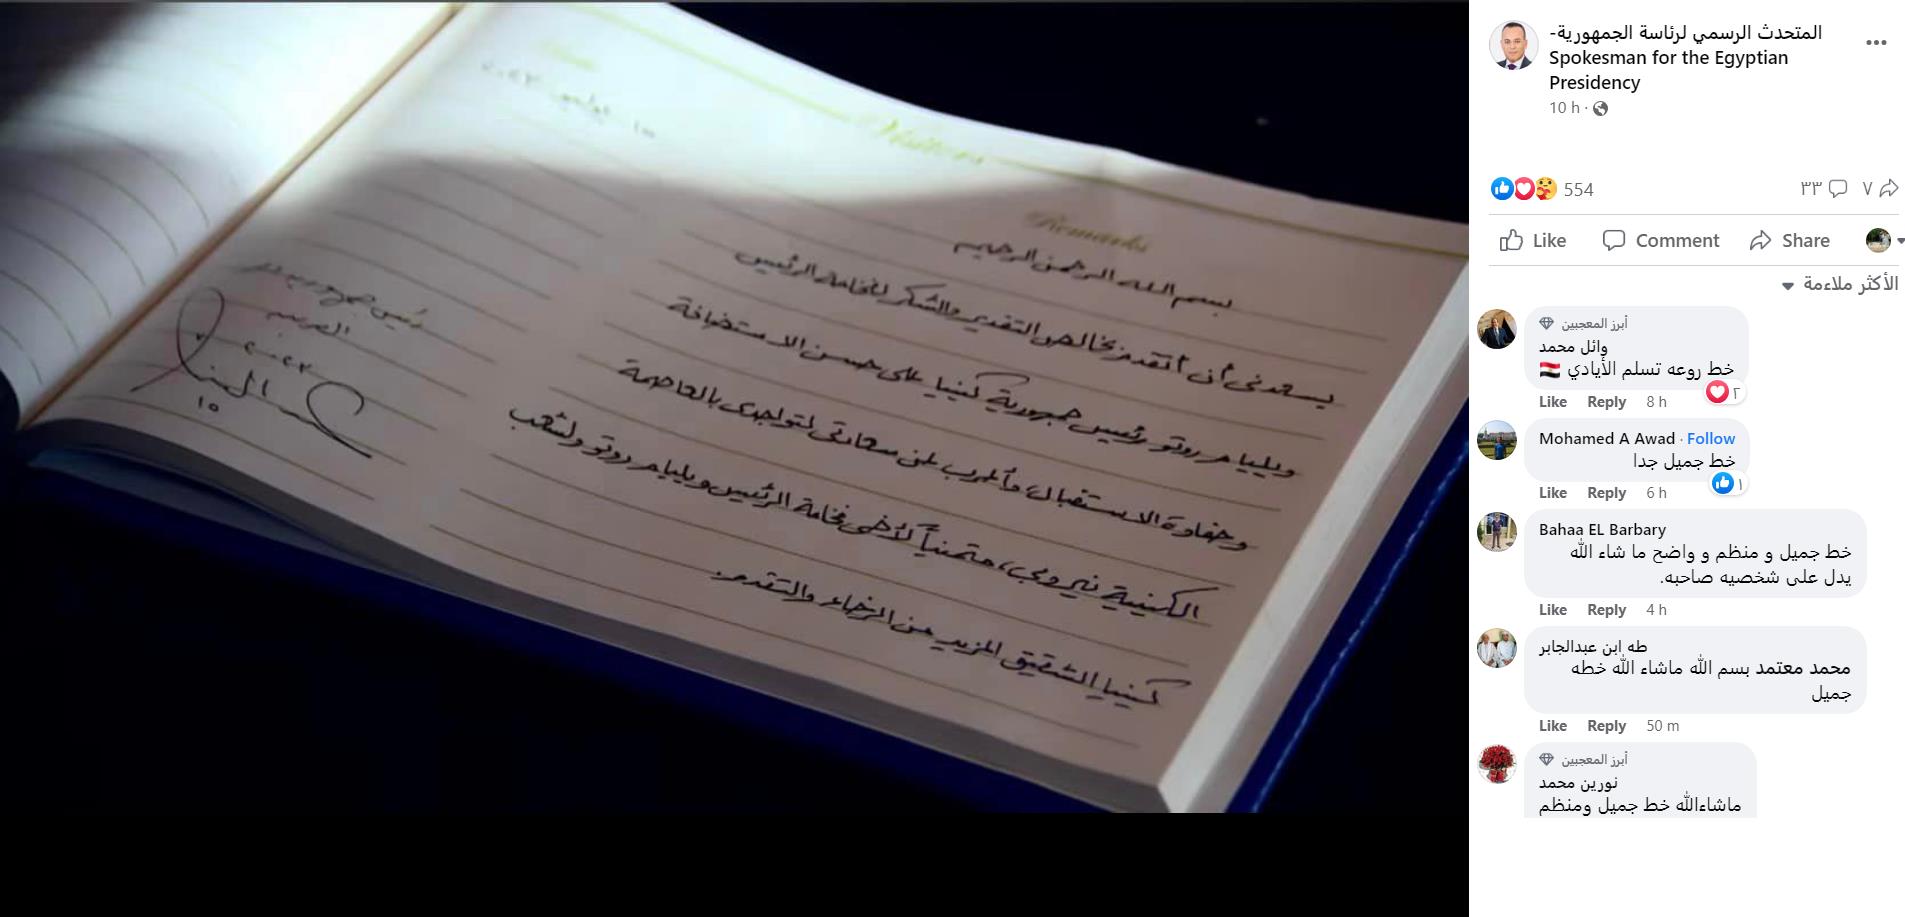 Visitors
Remarks
بسم الله الرحمن الرحيم
يسعدني أن أتقدم بخالص التقدير والشكر لفخامة الرئيس
ويليام روتو رئيس جمهورية كينيا على حسن الاستضافة
وحفاوة الاستقبال، وأعرب عن سعادتي لتواجدي بالعاصمة
الكينية نيروبي، متمنياً لأخي فخامة الرئيس ويليام روتو ولشعب
كينيا الشقيق المزيد من الرخاء والتقدم.
رئيس جمهورية مصر
العربية
٢٠٢٣
١٥
المتحدث الرسمي لرئاسة الجمهورية-
Spokesman for the Egyptian
Presidency
10 h
554
٣٣
٧
Like Comment Share
الأكثر ملاءمة
أبرز المعجبين
وائل محمد
خط روعه تسلم الأيادي 🇪🇬
٢
Like Reply 8 h
Mohamed A Awad · Follow
خط جميل جدا
١
Like Reply 6 h
Bahaa EL Barbary
خط جميل و منظم و واضح ما شاء الله
يدل على شخصيه صاحبه.
Like Reply 4 h
طه ابن عبدالجابر
محمد معتمد بسم الله ماشاء الله خطه
جميل
Like Reply 50 m
أبرز المعجبين
نورين محمد
ماشاءالله خط جميل ومنظم